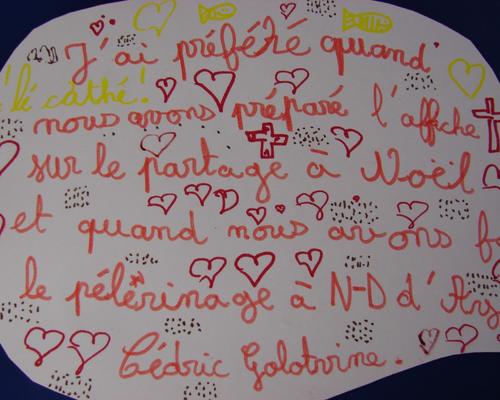 J'ai préféré quand
le cathé!
nous avons préparé l'affiche
sur le partage à Noël
et quand nous avons
le pélerinage à N-D d'
Cédric Golotvine.